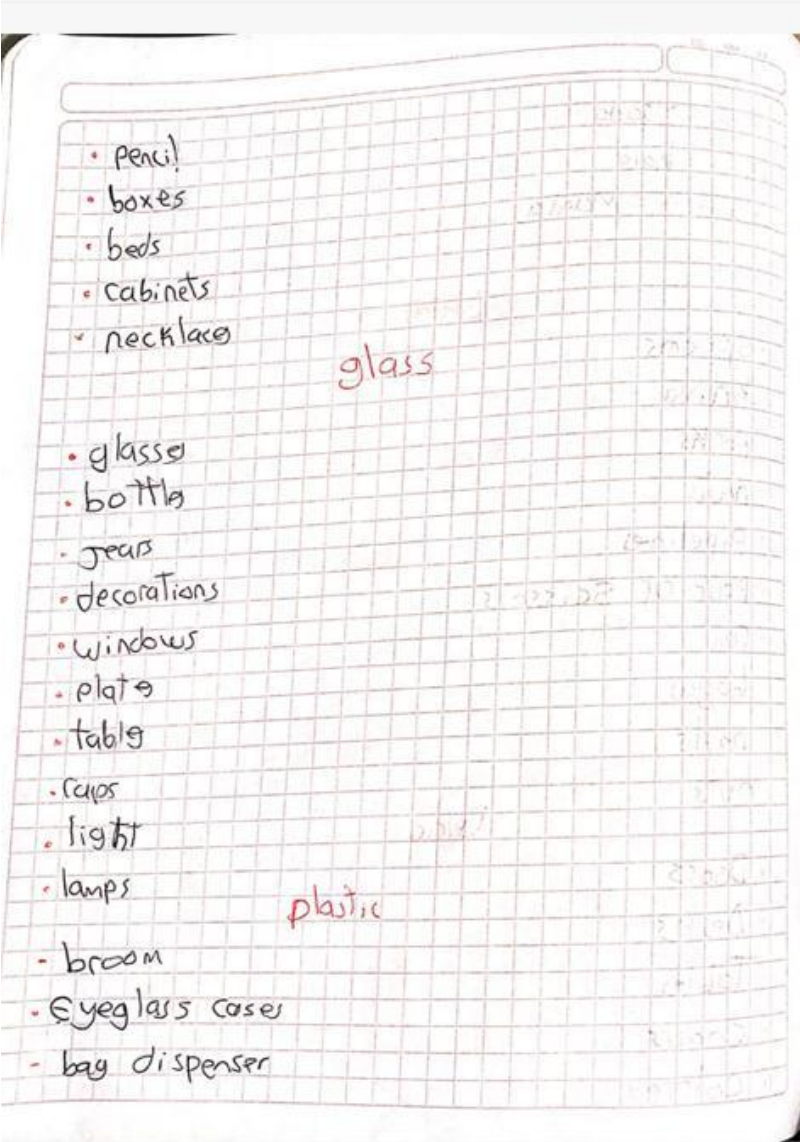 • pencil
• boxes
• beds
• cabinets
• necklace
glass
• glasse
• bottle
• jears
• decorations
• windows
• plate
• table
• cups
• light
• lamps
plastic
- broom
• Eyeglass cases
- bag dispenser